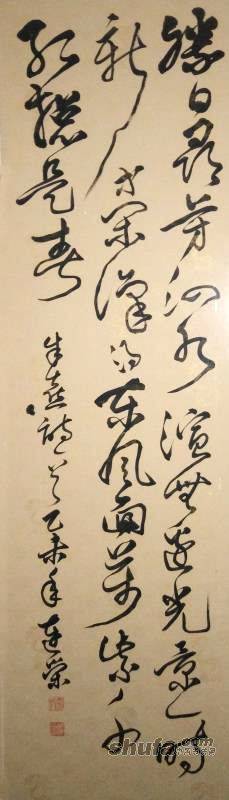 勝日尋芳泗水濱無邊光景一時
新等閒識得東風面萬紫千
紅總是春
朱熹詩一首乙未年連榮
shufa.com